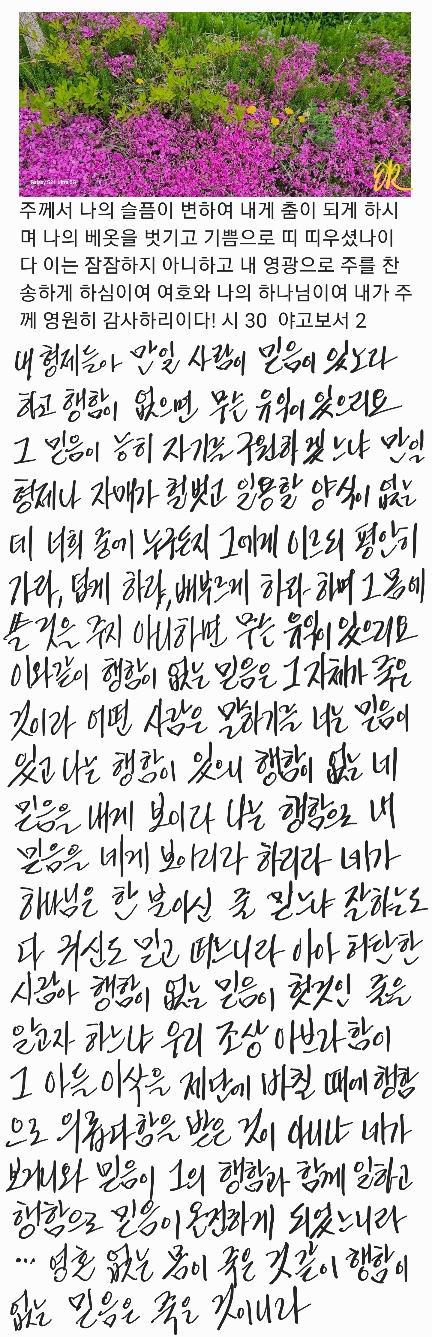 주께서 나의 슬픔이 변하여 내게 춤이 되게 하시
며 나의 베옷을 벗기고 기쁨으로 띠 띠우셨나이
다 이는 잠잠하지 아니하고 내 영광으로 주를 찬
송하게 하심이여 여호와 나의 하나님이여 내가 주
께 영원히 감사하리이다! 시 30 야고보서 2
내 형제들아 만일 사람이 믿음이 있노라
하고 행함이 없으면 무슨 유익이 있으리요
그 믿음이 능히 자기를 구원하겠느냐 만일
형제나 자매가 헐벗고 일용할 양식이 없는
데 너희 중에 누구든지 그에게 이르되 평안히
가라, 덥게 하라, 배부르게 하라 하며 그 몸에
쓸 것을 주지 아니하면 무슨 유익이 있으리요
이와같이 행함이 없는 믿음은 그 자체가 죽은
것이라 어떤 사람은 말하기를 너는 믿음이
있고 나는 행함이 있으니 행함이 없는 네
믿음을 내게 보이라 나는 행함으로 내
믿음을 네게 보이리라 하리라 네가
하나님은 한 분이신 줄 믿느냐 잘하는도
다 귀신도 믿고 떠느니라 아아 허탄한
사람아 행함이 없는 믿음이 헛것인 줄을
알고자 하느냐 우리 조상 아브라함이
그 아들 이삭을 제단에 바칠 때에 행함
으로 의롭다함을 받은 것이 아니냐 네가
보거니와 믿음이 그의 행함과 함께 일하고
행함으로 믿음이 온전하게 되었느니라
… 영혼 없는 몸이 죽은 것같이 행함이
없는 믿음은 죽은 것이니라